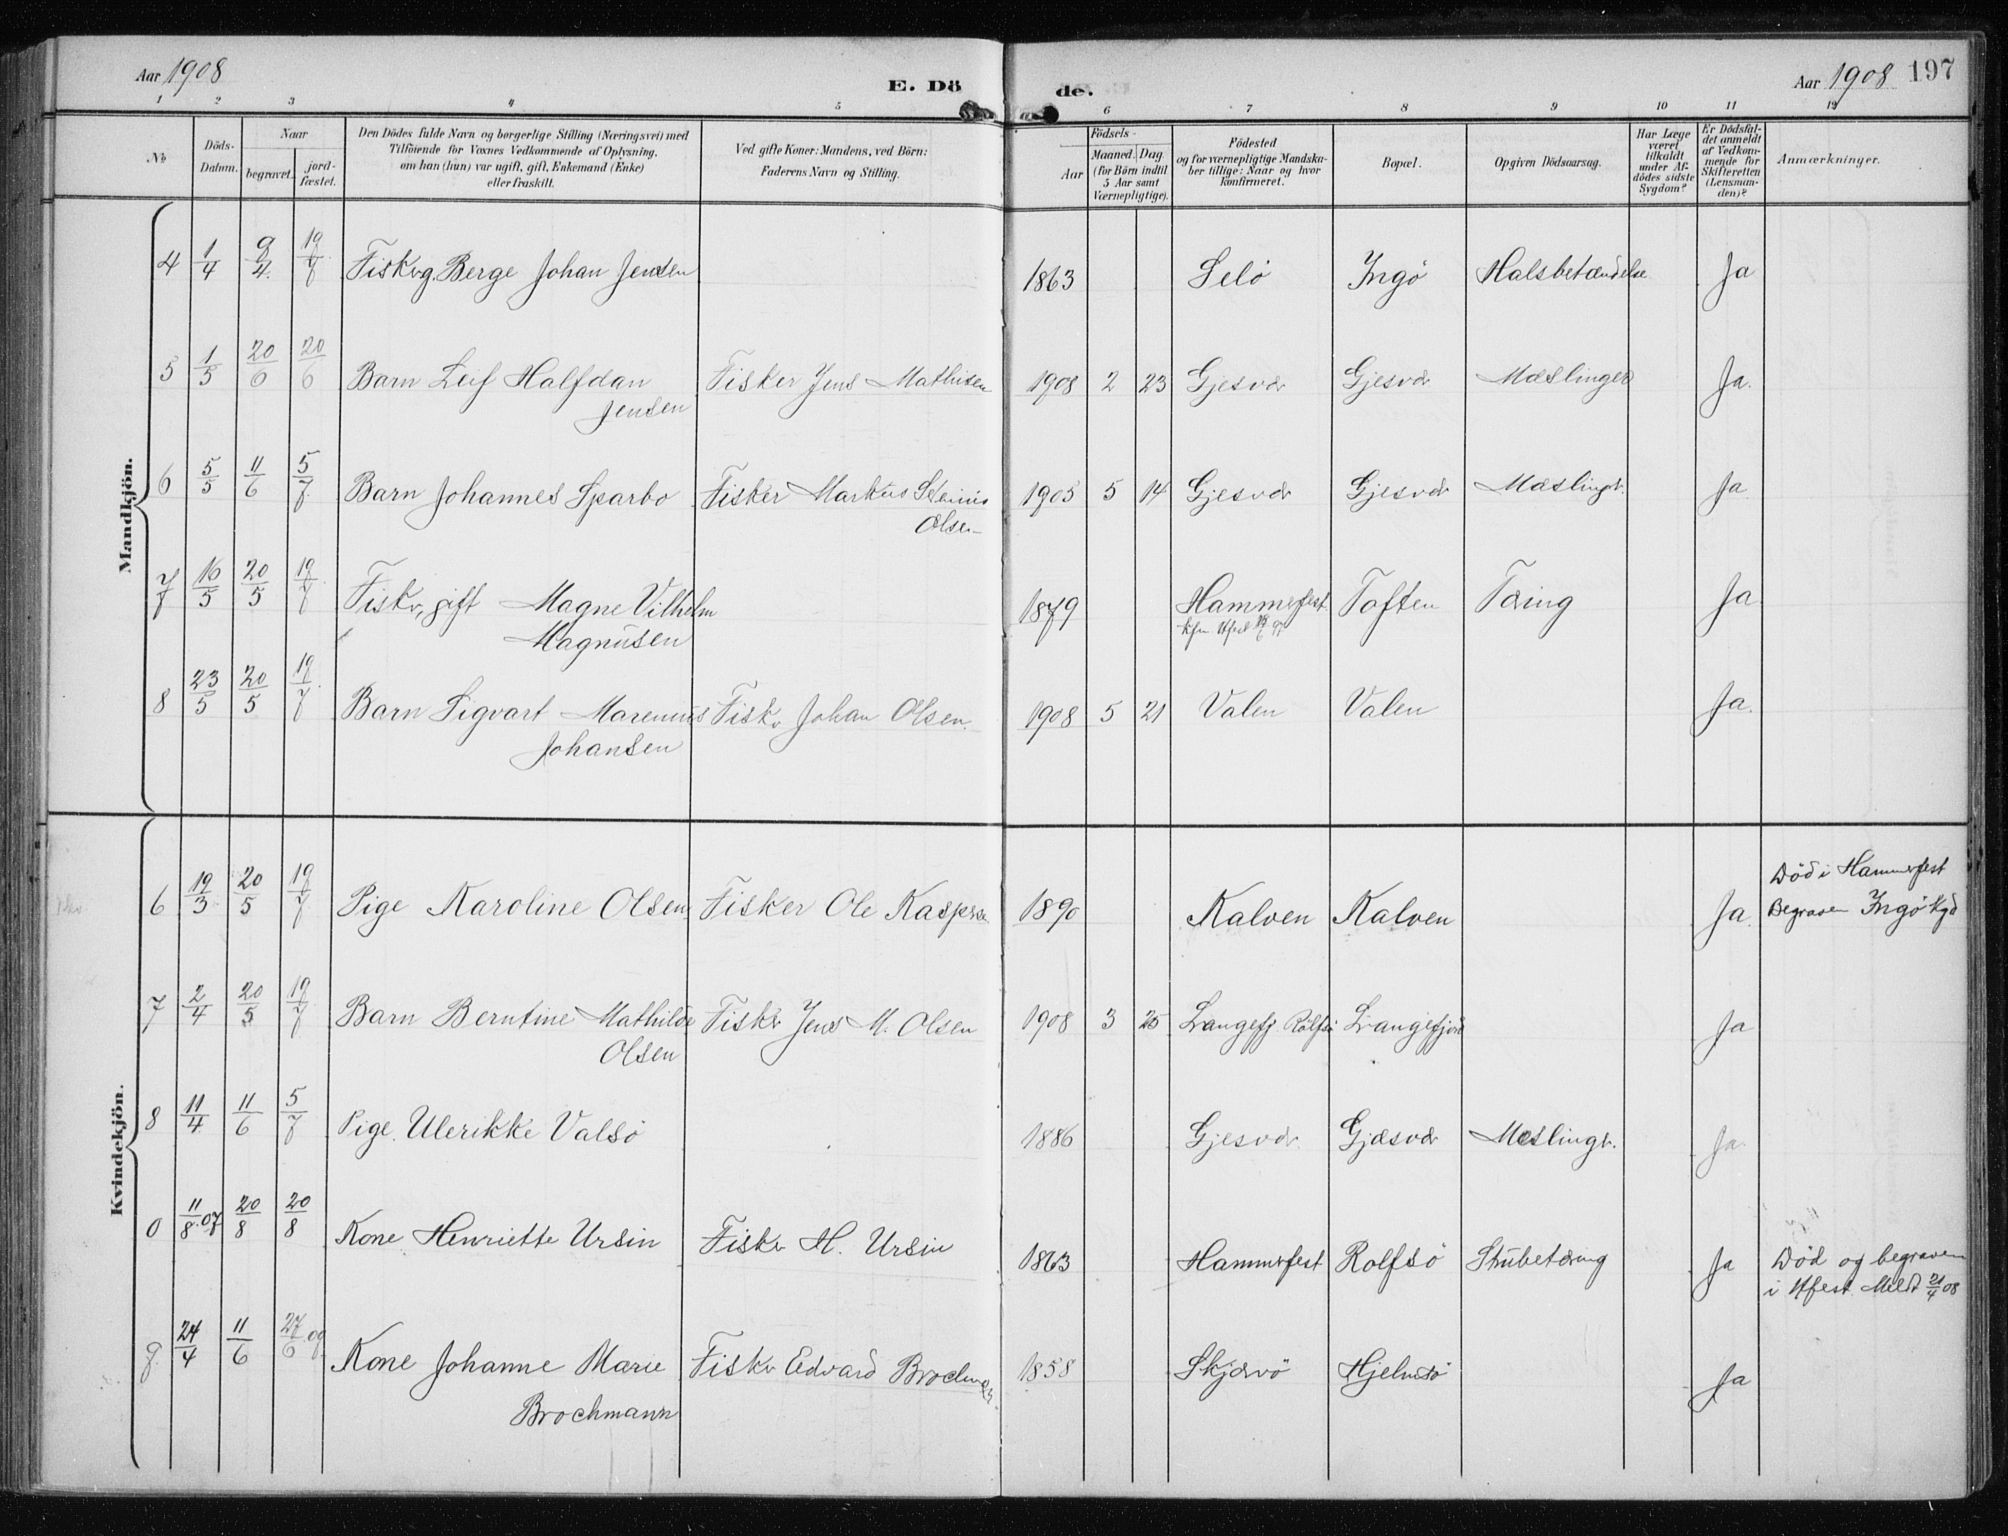 Aar 1908
E. Dö
de.
Aar 1908 197
1 2 3 4 5 6 7 8 9 10 11 12
No
Döds-
Datum.
Naar
begravet.
jord-
fæstet.
Den Dödes fulde Navn og borgerlige Stilling (Næringsvei) med
Tilföiende for Voxnes Vedkommende af Oplysning,
om han (hun) var ugift, gift, Enkemand (Enke)
eller fraskilt.
Ved gifte Koner: Mandens, ved Börn:
Faderens Navn og Stilling.
Födsels-
Aar
Maaned. Dag.
(for Börn indtil
5 Aar samt
Værnepligtige).
Födested
og for værnepligtige Mandska-
ber tillige: Naar og hvor
konfirmeret.
Bopæl.
Opgiven Dödsaarsag.
Har Læge
været
tilkaldt
under Af-
dödes sidste
Sygdom?
Er Dödsfal-
det anmeldt
af Vedkom-
mende for
Skifteretten
(Lensman-
den)?
Anmærkninger.
Mandkjön.
4 1/4 9/4 19/7 Fiskrg. Berge Johan Jensen 1863 Selö Ingö Halsbetændelse Ja
5 1/5 20/6 20/6 Barn Leif Halfdan Fisker Jens Mathisen 1908 2 23 Gjesvær Gjesvær Mæslinger Ja.
Jensen
6 5/5 11/6 5/7 Barn Johannes Sparbo Fisker Markus 1905 5 14 Gjesvær Gjesvær Mæslingr. Ja
Olsen
7 16/5 20/5 19/7 Fiskr, gift Magne Vilhelm 1879 Hammerfest Toften Tæring Ja
Magnusen
8 23/5 20/5 19/7 Barn Sigvart Marenius Fiskr Johan Olsen. 1908 5 21 Valen Valen Ja.
Johansen
Kvindekjön.
6 19/3 20/5 19/7 Pige Karoline Olsen Fisker Ole Kaspersen 1890 Kalven Kalven Ja. Död i Hammerfest
Begraven Ingö Kgd
7 2/4 20/5 19/7 Barn Berntine Mathilde Fiskr Jens M. Olsen 1908 3 25 Langefj. Rolfsö Langefjord Ja
Olsen
8 11/4 11/6 5/7 Pige Ulerikke Valsö 1886 Gjesvær. Gjæsvær Mæslingr. Ja.
0 11/8.07 20/8 20/8 Kone Henriette Ursin Fiskr H. Ursin 1863 Hammerfest Rolfsö Strubetæring Ja Död og begraven
i Hfest. Meldt 21/4 08
9. 24/4 11/6 27/6 09 Kone Johanne Marie Fiskr Edvard Brochmann 1858 Skjærvö Hjelmsö Ja
Brochmann